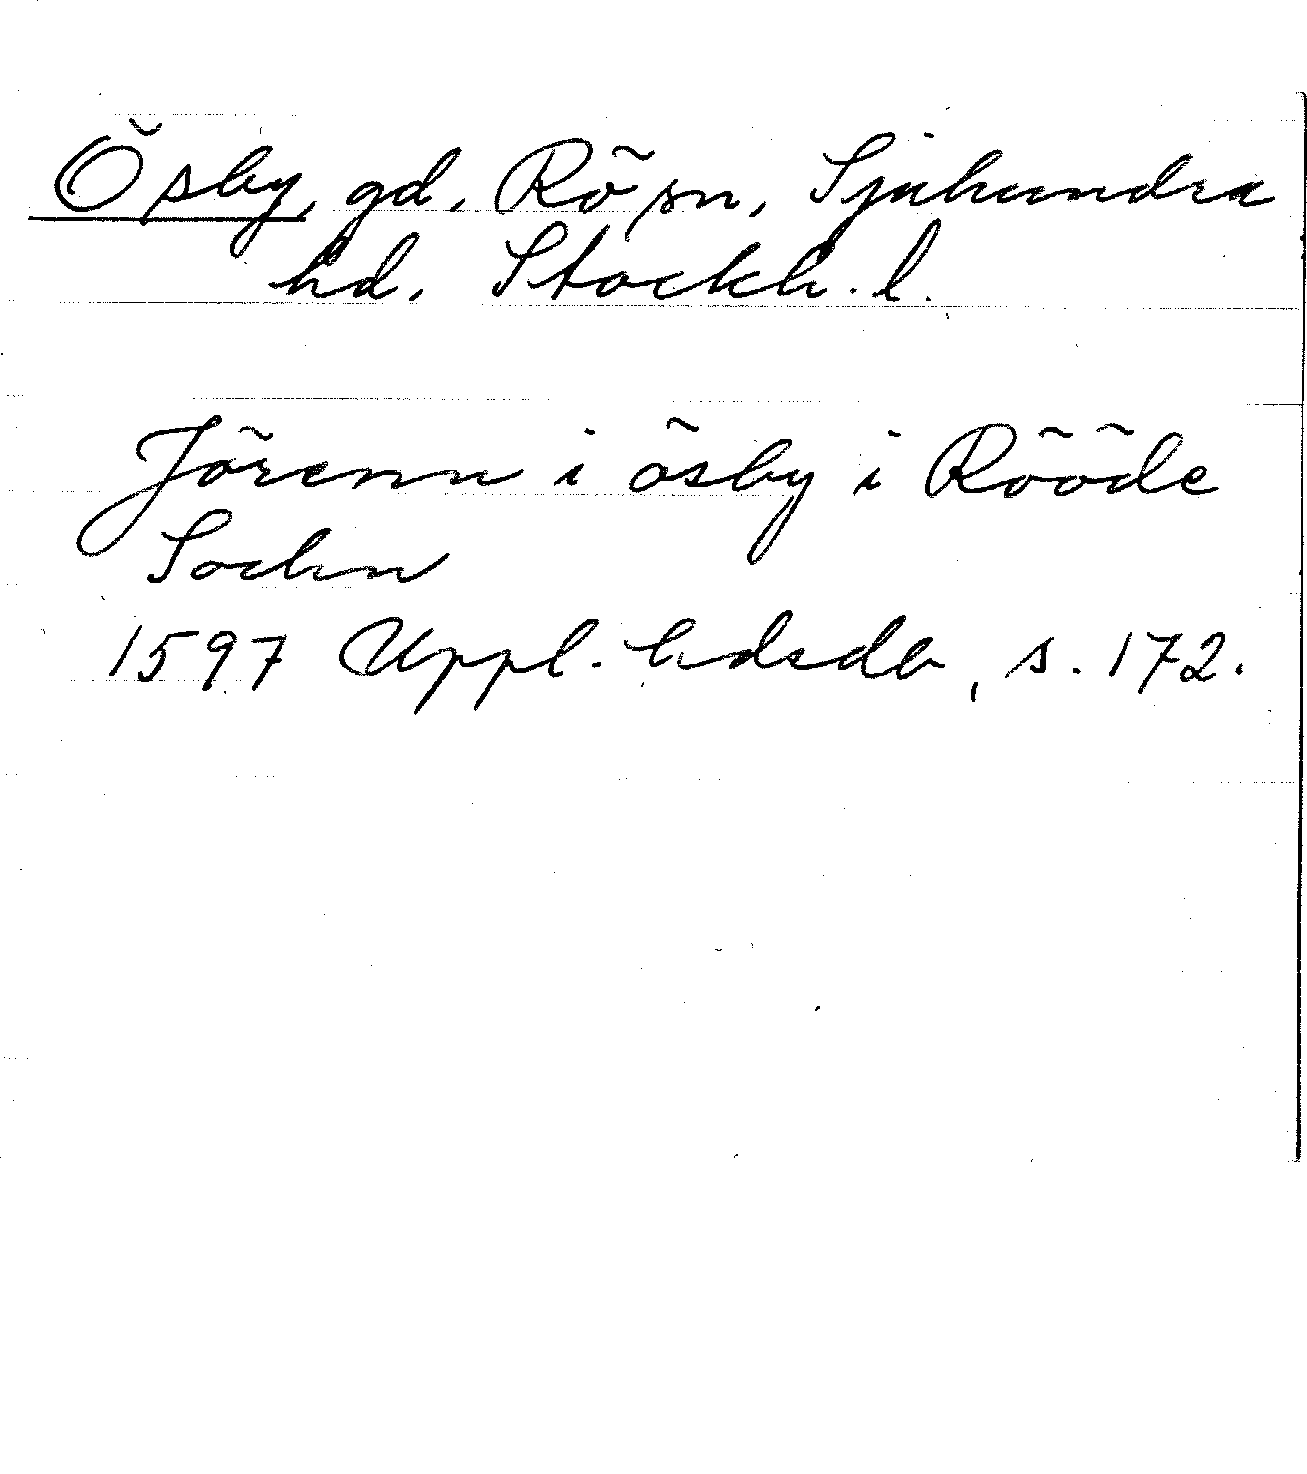 Ösby, gd, Rö sn, Sjuhundra
hd. Stockh. l.
Jörenn i ösby i Rööde
Sochn
1597 Uppl. hdsdb, s. 172.